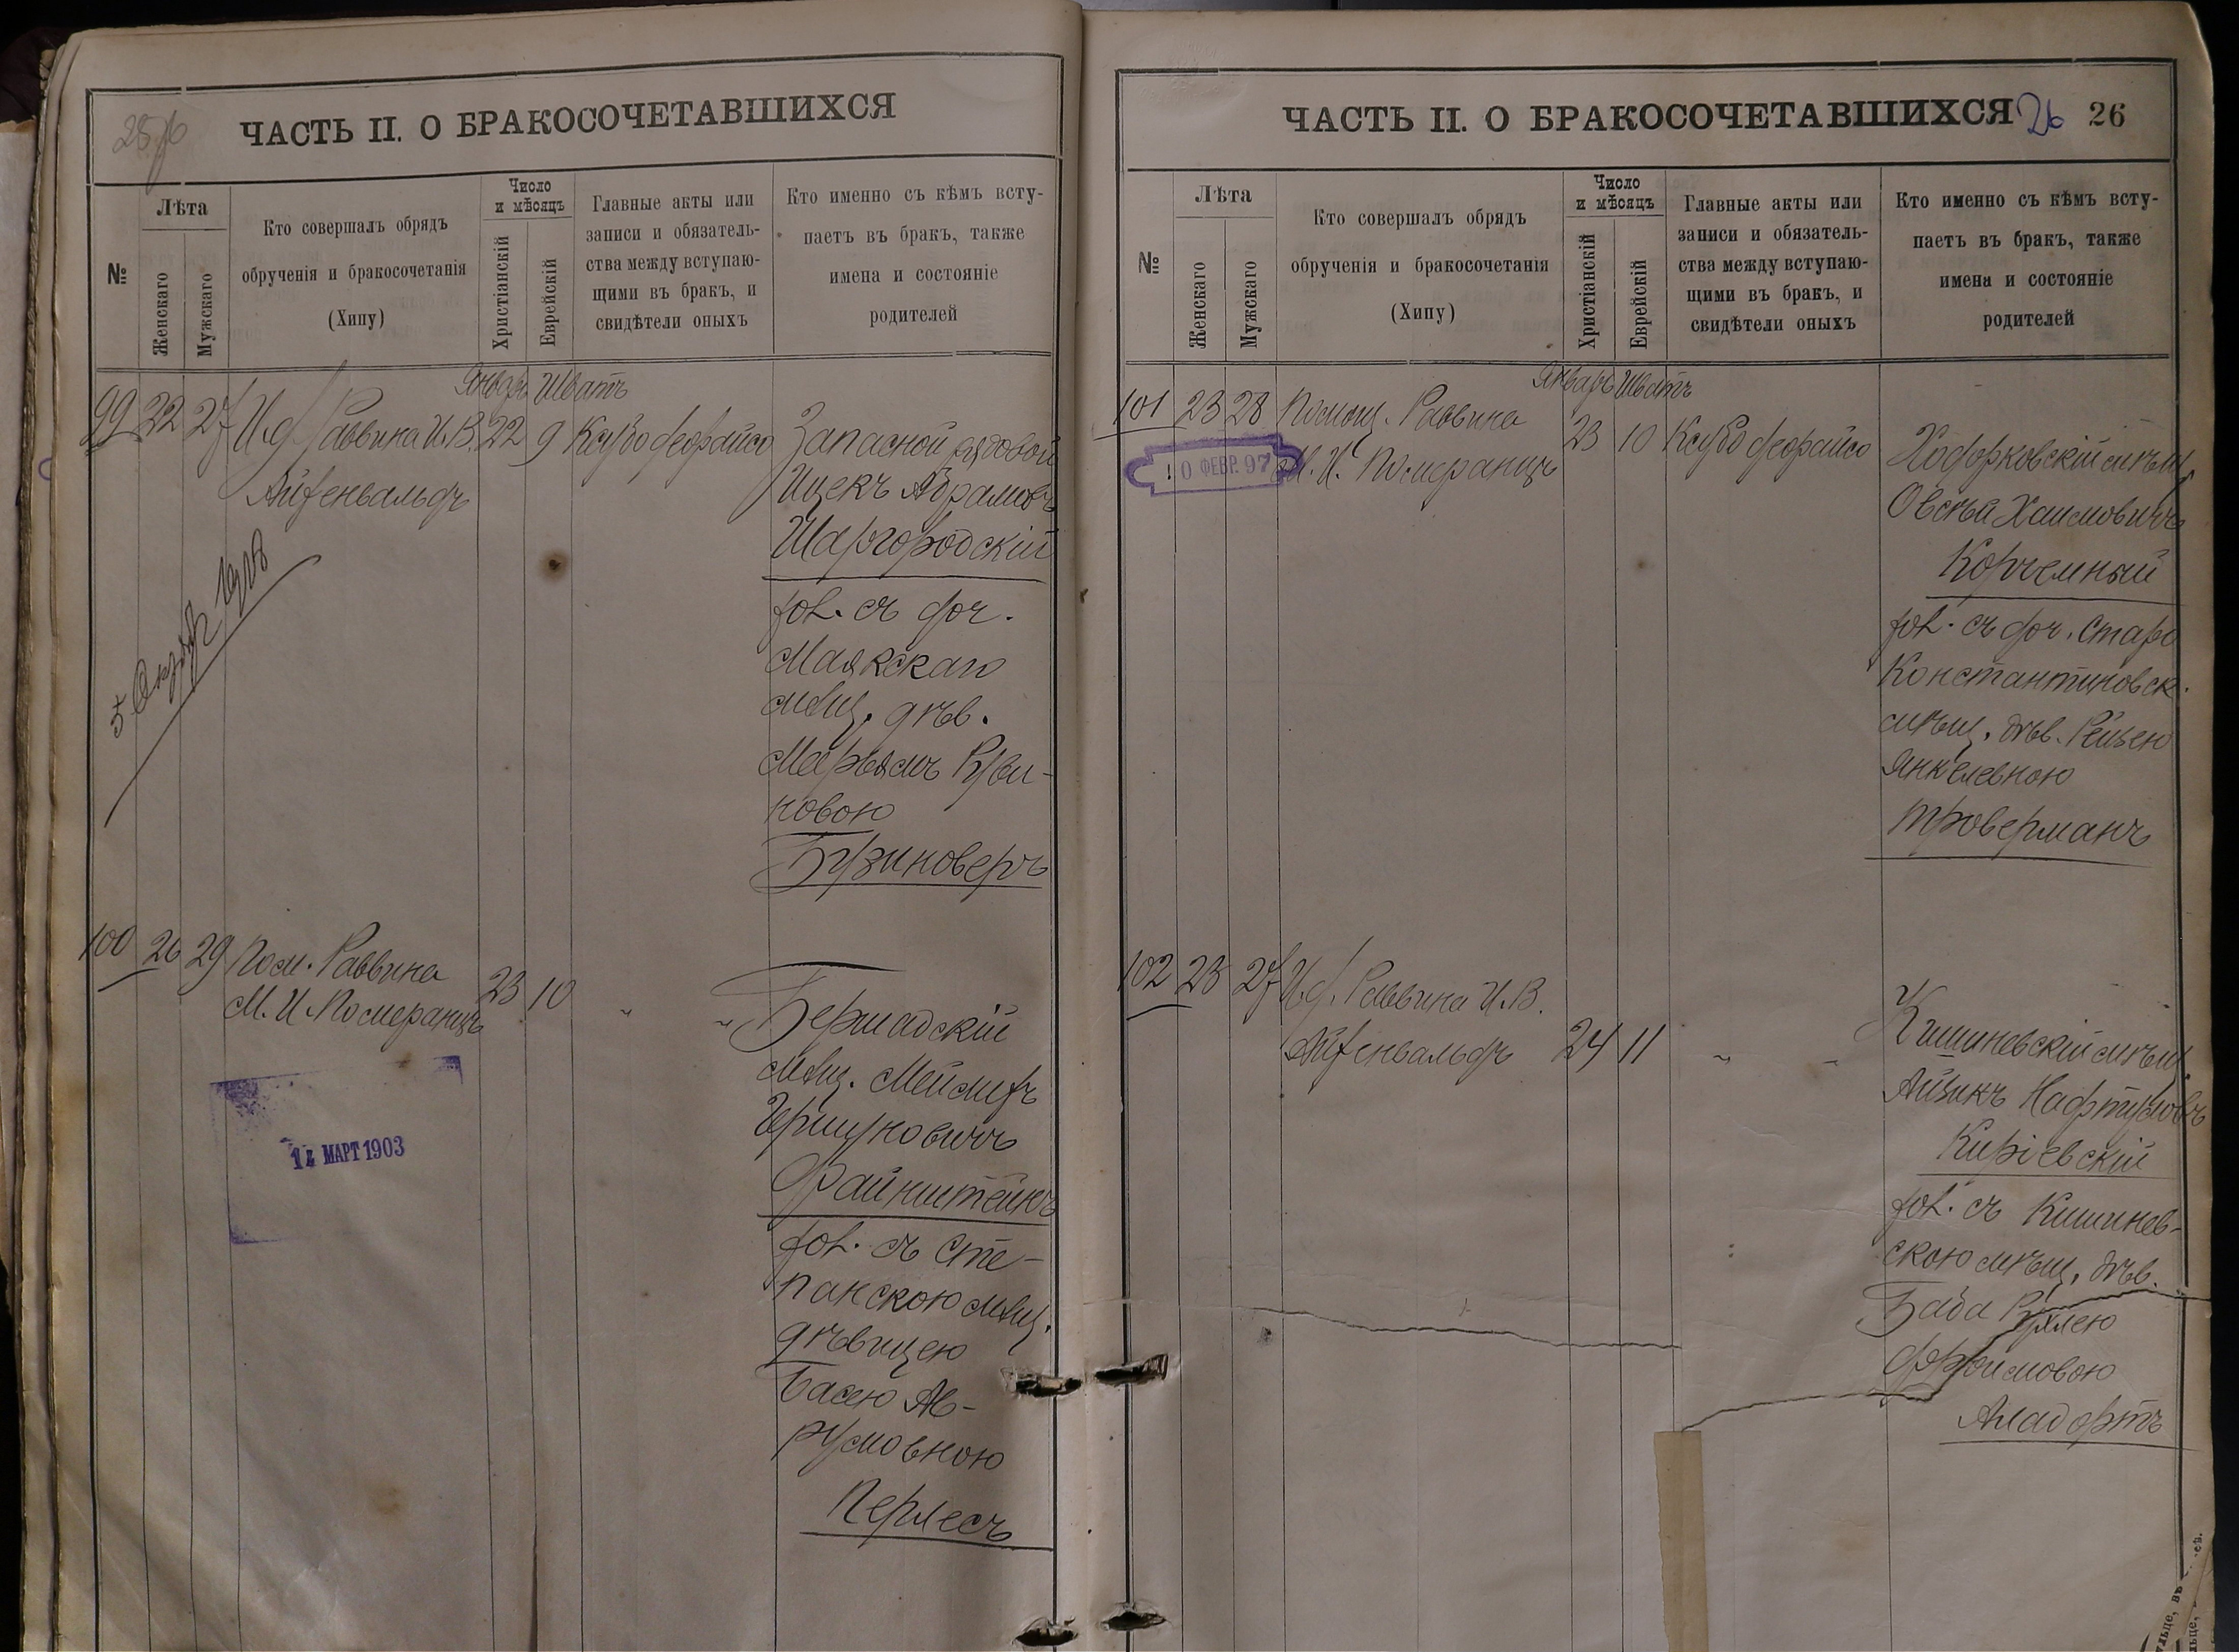 ЧАСТЬ II. О БРАКОСОЧЕТАВШИХСЯ
№
Лѣта
Женскаго
Мужскаго
Кто совершалъ обрядъ
обрученія и бракосочетанія
(Хипу)
Число
и мѣсяцъ
Христіанскій
Еврейскій
Главные акты или
записи и обязатель-
ства между вступаю-
щими въ бракъ, и
свидѣтели оныхъ
Кто именно съ кѣмъ всту-
паетъ въ бракъ, также
имена и состояніе
родителей
Январь Шватъ
99 22 27 И.д. Раввина И.В. 22 9 Ксубо деорайсо
Айзенвальдъ
Запасной рядовой
Ицекъ Абрамовъ
Шаргородскій
съ доч.
Маякскаго
мѣщ. дѣв.
Марьямъ Руви-
новою
Бузиноверъ
100 26 29 Пом. Раввина
М. И. Померанцъ 23 10 „ „
14 МАРТ 1903
Бершадскій
мѣщ. Мейлихъ
Гершуновичъ
Файнштейнъ
съ Сте-
панскою мѣщ.
дѣвицею
Басею Ав-
румовною
Перлесъ
ЧАСТЬ II. О БРАКОСОЧЕТАВШИХСЯ 26 26
№
Лѣта
Женскаго
Мужскаго
Кто совершалъ обрядъ
обрученія и бракосочетанія
(Хипу)
Число
и мѣсяцъ
Христіанскій
Еврейскій
Главные акты или
записи и обязатель-
ства между вступаю-
щими въ бракъ, и
свидѣтели оныхъ
Кто именно съ кѣмъ всту-
паетъ въ бракъ, также
имена и состояніе
родителей
Январь Шватъ
101 23 28 Помощ. Раввина 23 10 Ксубо деорайсо
М. И. Померанцъ
0 ФЕВР. 97
Ходорковскій мѣщ.
Овсѣй Хаимовичъ
Корчемный
съ доч. Старо
Константиновск.
мѣщ. дѣв. Рейзею
Янкелевною
Троверманъ
102 23 27 И.д. Раввина И.В.
Айзенвальдъ 24 11 „ „
Кишиневскій мѣщ.
Айзикъ Нафтуловъ
Киріевскій
съ Кишинев-
скою мѣщ. дѣв.
Баба Рухлею
Фроимовою
Аладортъ